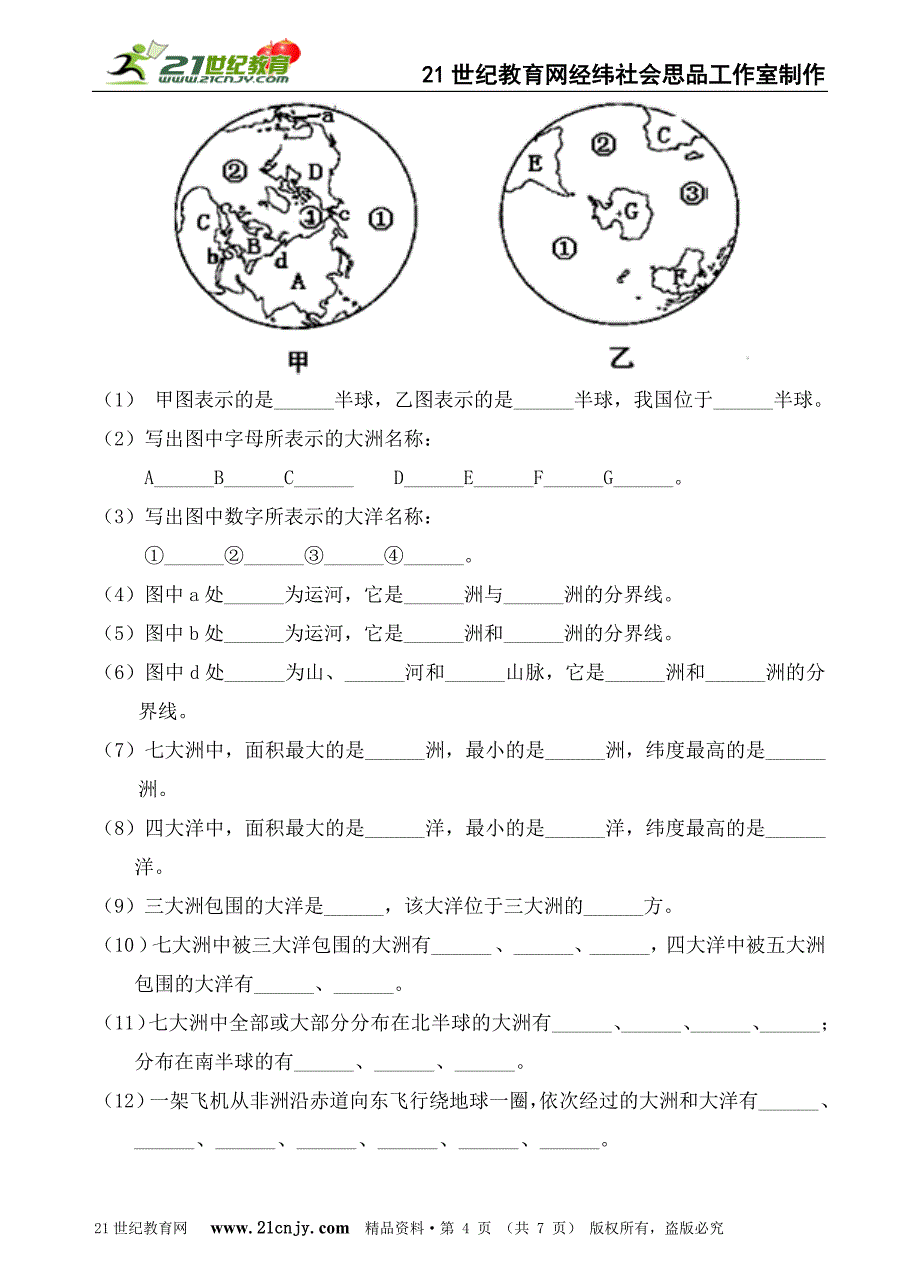 21世纪教育网
www.21cnjy.com
21世纪教育网经纬社会思品工作室制作
a ② D C ① c ① b B d A
② C E ③ G ① F
甲 乙
(1) 甲图表示的是______半球,乙图表示的是______半球,我国位于______半球。
(2)写出图中字母所表示的大洲名称:
A______B______C______ D______E______F______G______。
(3)写出图中数字所表示的大洋名称:
①______②______③______④______。
(4)图中a处______为运河,它是______洲与______洲的分界线。
(5)图中b处______为运河,它是______洲和______洲的分界线。
(6)图中d处______为山、______河和______山脉,它是______洲和______洲的分
界线。
(7)七大洲中,面积最大的是______洲,最小的是______洲,纬度最高的是______
洲。
(8)四大洋中,面积最大的是______洋,最小的是______洋,纬度最高的是______
洋。
(9)三大洲包围的大洋是______,该大洋位于三大洲的______方。
(10)七大洲中被三大洋包围的大洲有______、______、______,四大洋中被五大洲
包围的大洋有______、______。
(11)七大洲中全部或大部分分布在北半球的大洲有______、______、______、______;
分布在南半球的有______、______、______。
(12)一架飞机从非洲沿赤道向东飞行绕地球一圈,依次经过的大洲和大洋有______、
______、______、______、______、______、______。
21世纪教育网 www.21cnjy.com 精品资料·第 4 页 (共 7 页) 版权所有,盗版必究